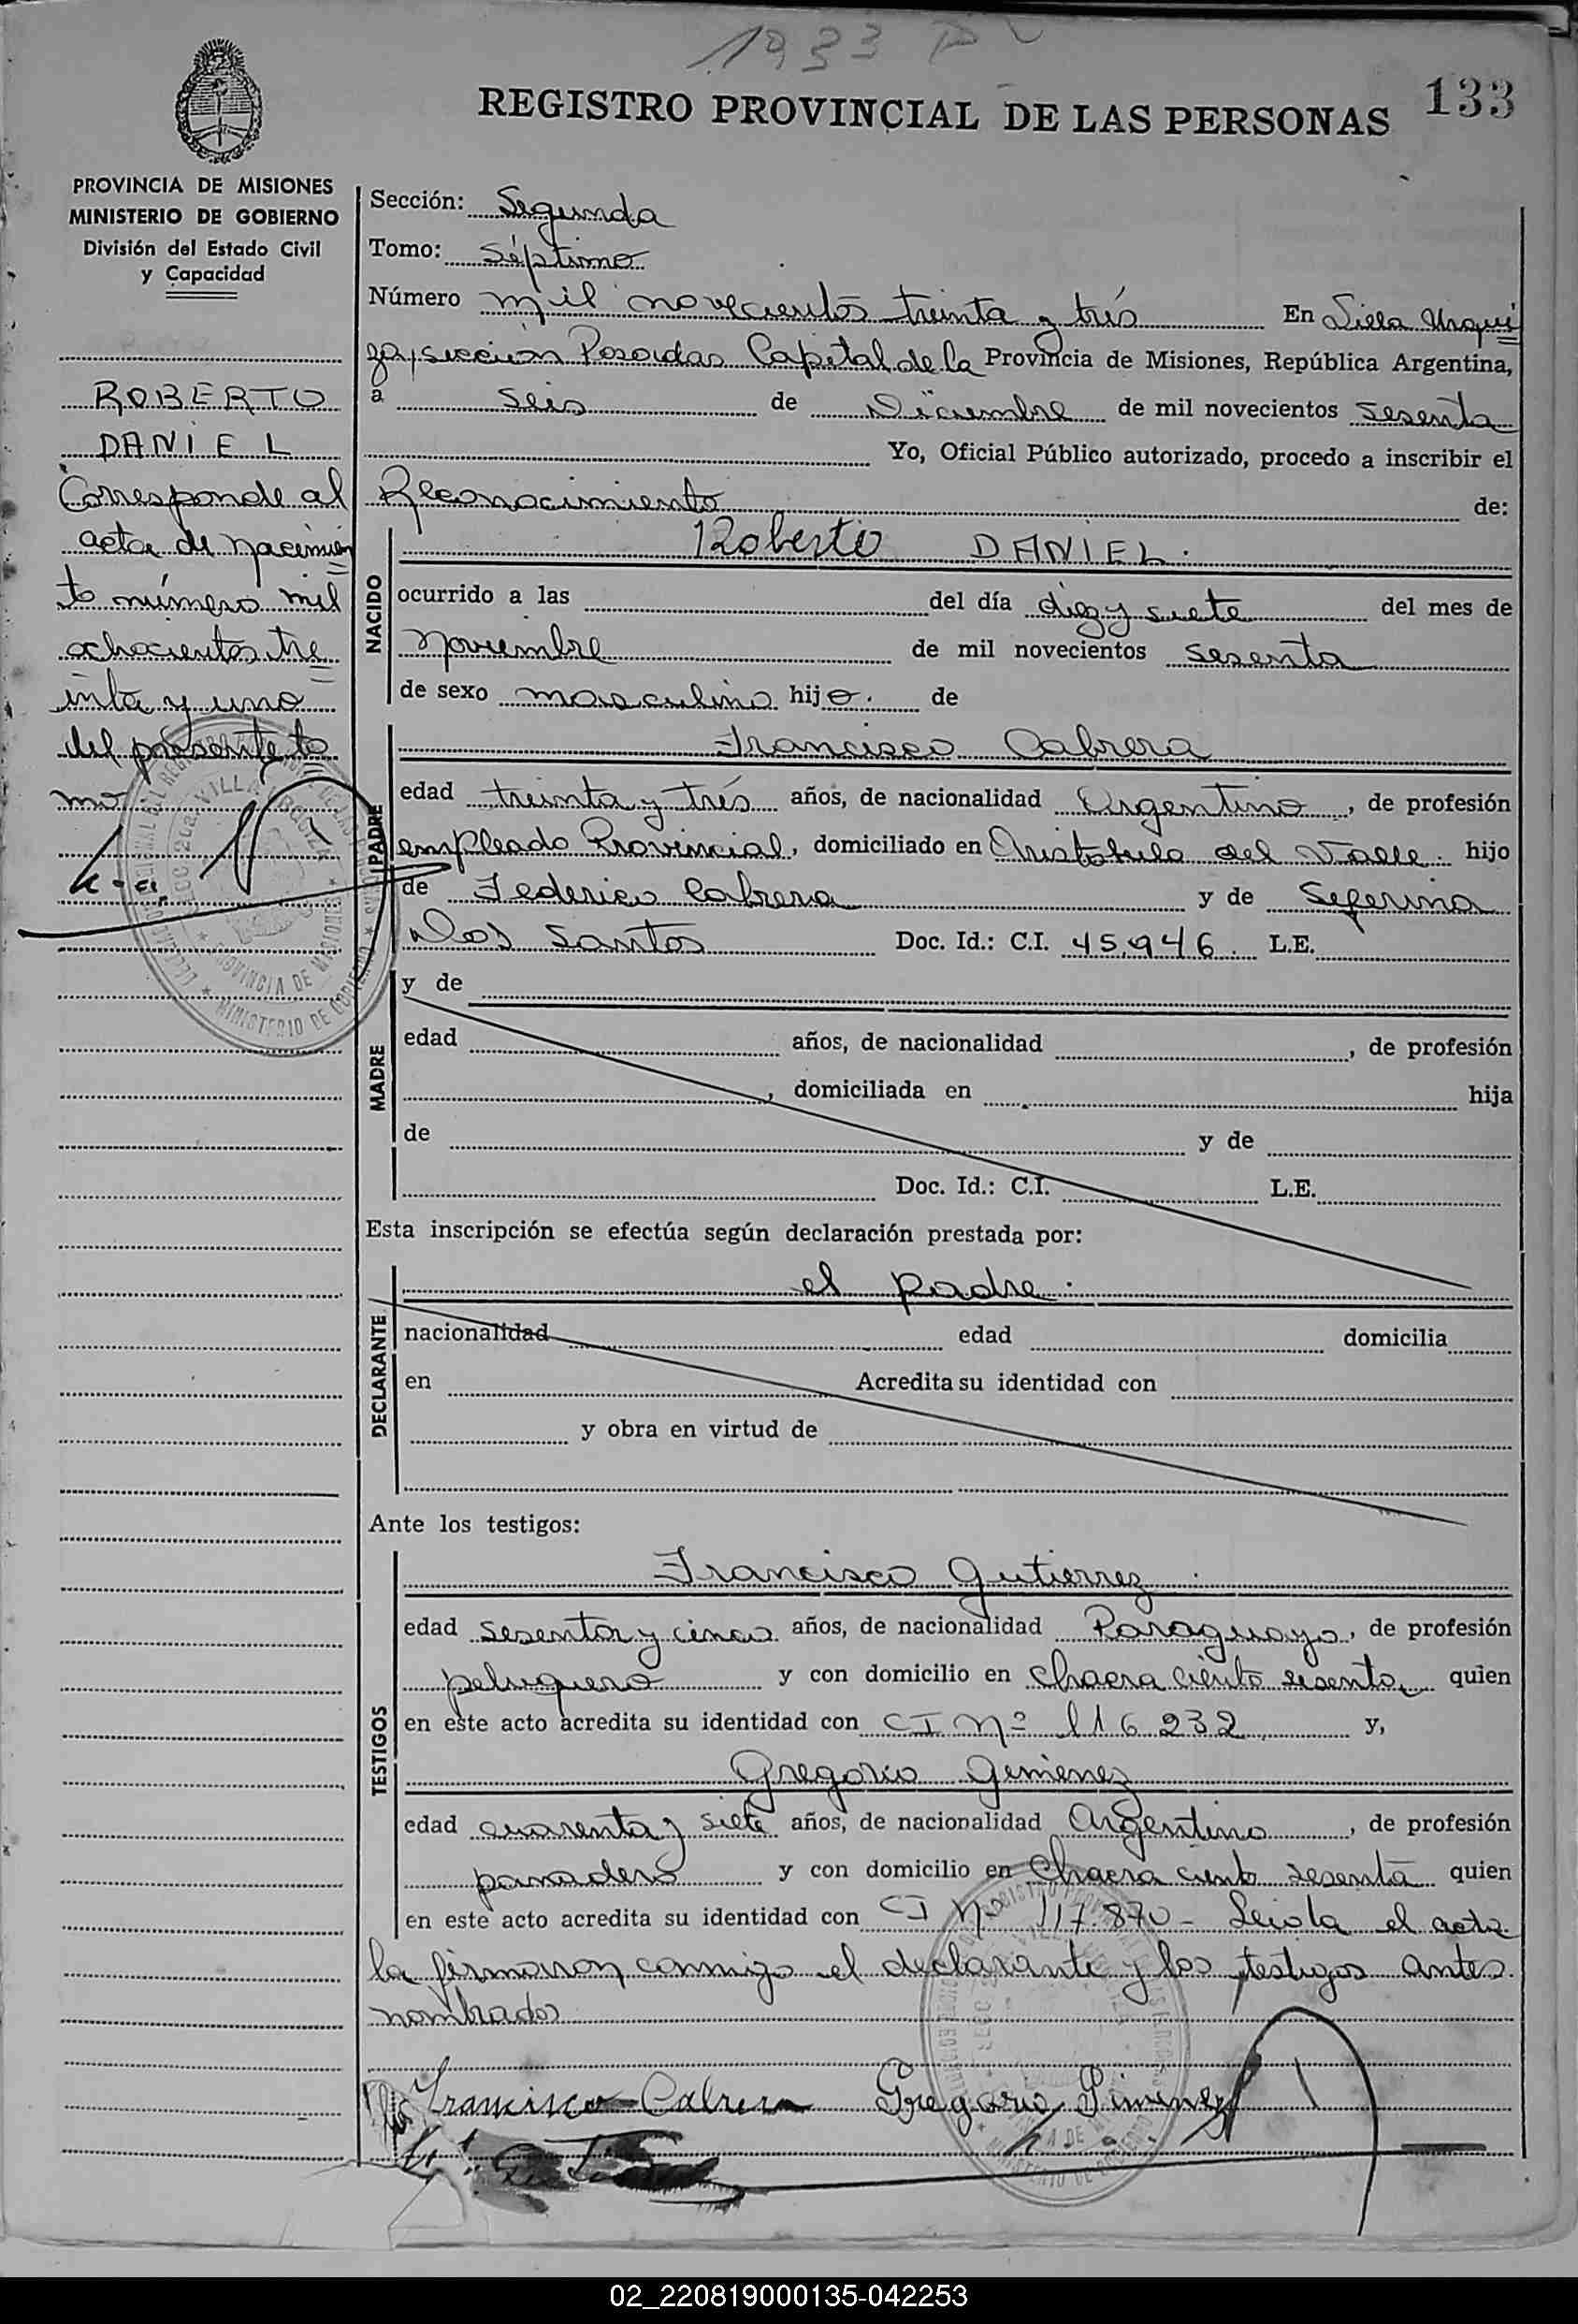 1933
133
REGISTRO PROVINCIAL DE LAS PERSONAS
PROVINCIA DE MISIONES
MINISTERIO DE GOBIERNO
División del Estado Civil
y Capacidad
ROBERTO
DANIEL
Corresponde al
acta de nacimien
to número mil
ochocientos tre
inta y uno
del presente to
mo
Sección: Segunda
Tomo: Séptimo
Número mil novecientos treinta y trés En Villa Urqui
za, sección Posadas Capital de la Provincia de Misiones, República Argentina,
a seis de Diciembre de mil novecientos sesenta
Yo, Oficial Público autorizado, procedo a inscribir el
Reconocimiento de:
NACIDO
Roberto DANIEL.
ocurrido a las del día diez y siete del mes de
Noviembre de mil novecientos sesenta
de sexo masculino hijo. de
PADRE
Francisco Cabrera
edad treinta y trés años, de nacionalidad Argentino, de profesión
empleado Provincial, domiciliado en Aristobulo del Valle. hijo
de Federico Cabrera y de Seferina
Dos Santos Doc. Id.: C.I. 45.946. L.E.
MADRE
y de
edad años, de nacionalidad , de profesión
, domiciliada en hija
de y de
Doc. Id.: C.I. L.E.
Esta inscripción se efectúa según declaración prestada por:
DECLARANTE
el padre.
nacionalidad edad domicilia
en Acredita su identidad con
y obra en virtud de
Ante los testigos:
TESTIGOS
Francisco Gutierrez.
edad sesenta y cinco años, de nacionalidad Paraguayo, de profesión
peluquero y con domicilio en Chacra ciento sesenta, quien
en este acto acredita su identidad con CI Nº 116232 y,
Gregorio Gimenez
edad cuarenta y siete años, de nacionalidad Argentino, de profesión
panadero y con domicilio en Chacra ciento sesenta quien
en este acto acredita su identidad con CI Nº 117.870- Leida el acta
la firmaron conmigo el declarante y los testigos antes
nombrados
Francisco Cabrera Gregorio Gimenez
02_220819000135-042253